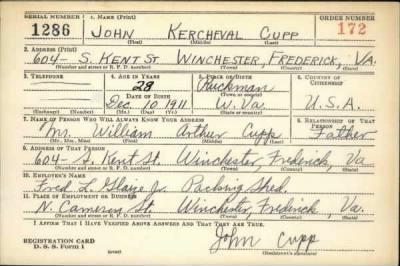 SERIAL NUMBER 1. NAME (Print) ORDER NUMBER
1286 JOHN KERCHEVAL CUPP 172
(First) (Middle) (Last)
2. ADDRESS (Print)
604- S. KENT ST. WINCHESTER, FREDERICK, VA.
(Number and street or R. F. D. number) (Town) (County) (State)
3. TELEPHONE 4. AGE IN YEARS 5. PLACE OF BIRTH 6. COUNTRY OF CITIZENSHIP
28 Ruckman
DATE OF BIRTH (Town or county)
Dec. 10 1911 W. Va U.S.A.
(Exchange) (Number) (Mo.) (Day) (Yr.) (State or country)
7. NAME OF PERSON WHO WILL ALWAYS KNOW YOUR ADDRESS 8. RELATIONSHIP OF THAT PERSON
Mr. William Arthur Cupp Father
(Mr., Mrs., Miss) (First) (Middle) (Last)
9. ADDRESS OF THAT PERSON
604- S. Kent St. Winchester, Frederick, Va
(Number and street or R. F. D. number) (Town) (County) (State)
10. EMPLOYER'S NAME
Fred L. Glaize Jr. Packing Shed.
11. PLACE OF EMPLOYMENT OR BUSINESS
N. Cameron St. Winchester, Frederick, Va.
(Number and street or R. F. D. number) (Town) (County) (State)
I AFFIRM THAT I HAVE VERIFIED ABOVE ANSWERS AND THAT THEY ARE TRUE.
REGISTRATION CARD John Cupp
D. S. S. FORM 1 (Registrant's signature)